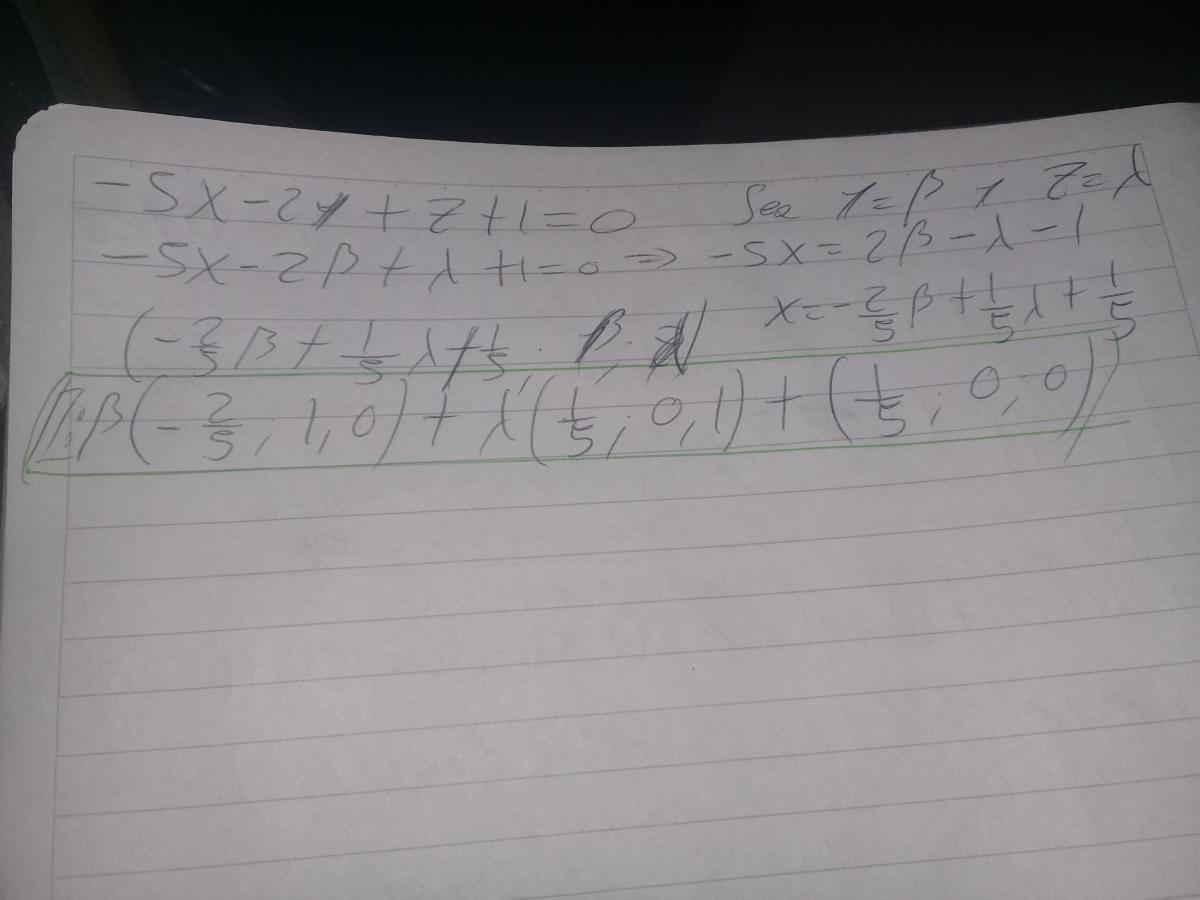 -5x-2y+z+1=0 Sea y=β y z=λ
-5x-2β+λ+1=0 => -5x=2β-λ-1
x=-2/5β+1/5λ+1/5
(-2/5β+1/5λ+1/5; β; λ)
π: β(-2/5; 1, 0)+λ(1/5; 0, 1)+(1/5; 0; 0)